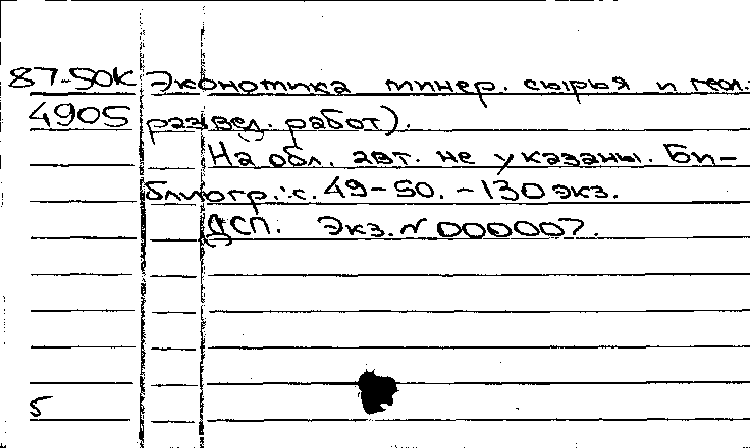 87-50К Экономика минер. сырья и геол.-
4905 развед. работ).
На обл. авт. не указаны. Би-
блиогр.: с. 49-50. - 130 экз.
ДСП. Экз. N 000007.
5